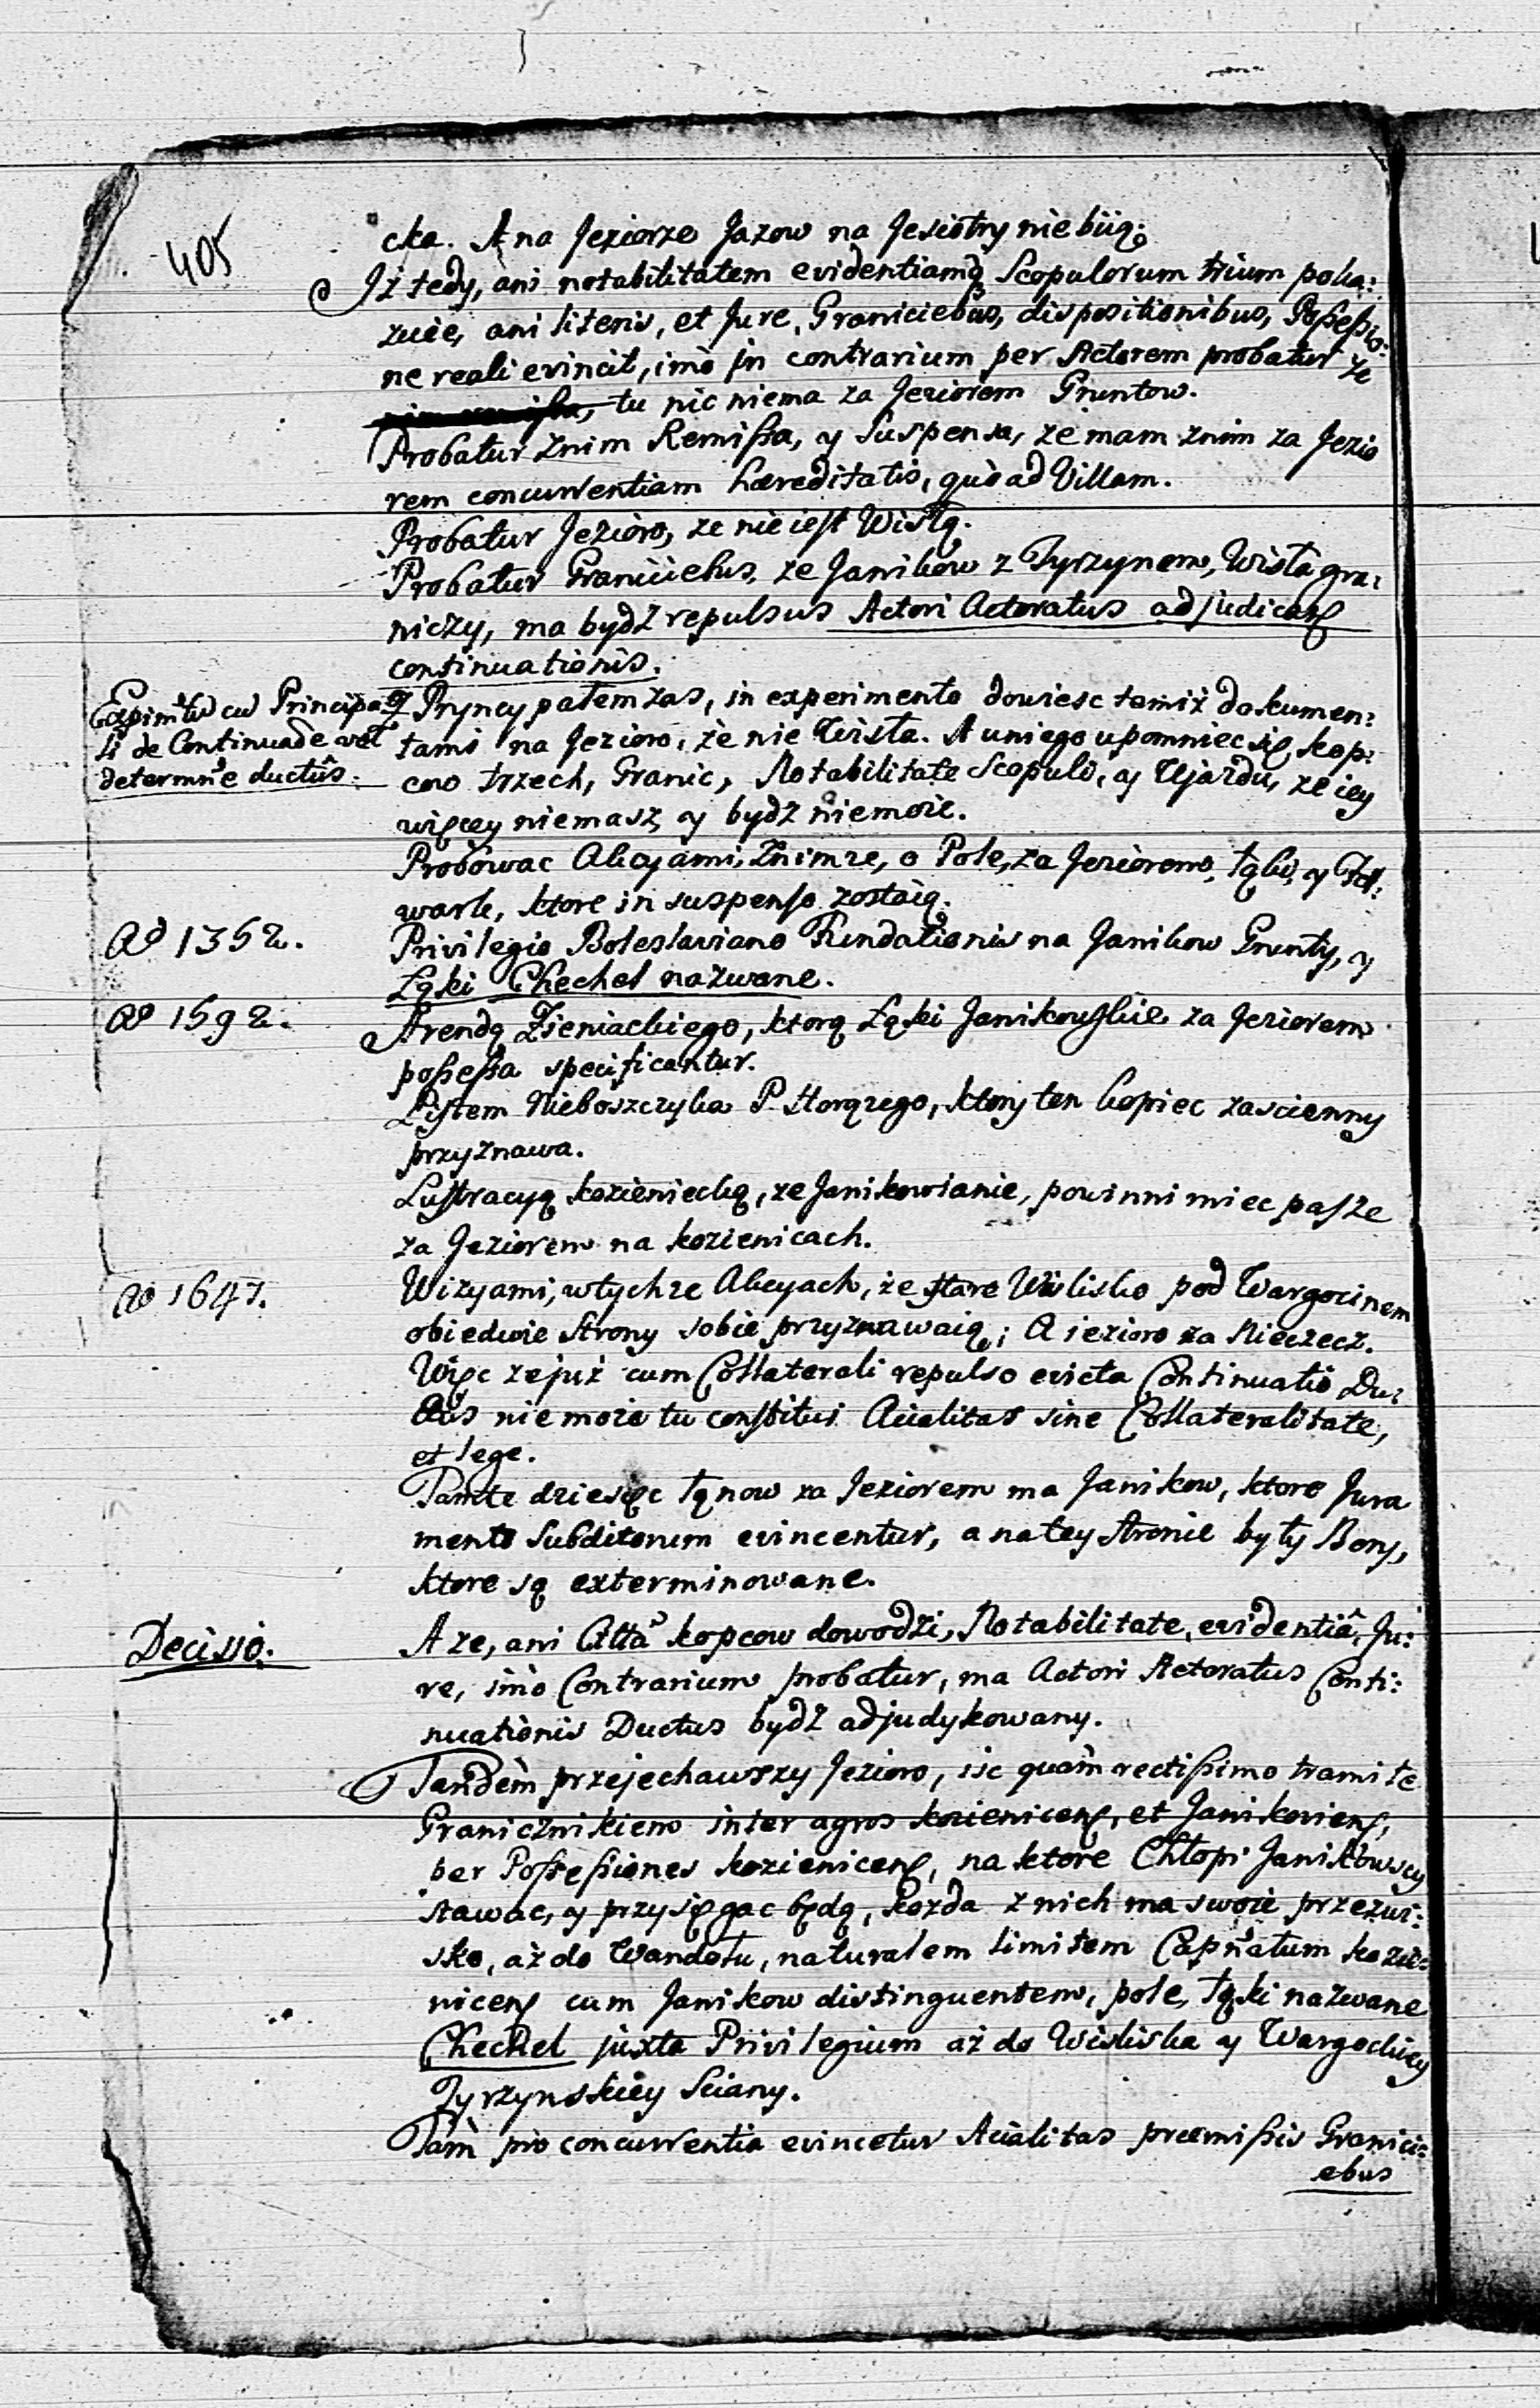 405
cka. A na Jeziorze Jazow na Jesiotry nie biią.
Iż tedy, ani notabilitatem evidentiamq Scopulorum trium poka:
zuie, ani literis, et Jure, Graniciebus, dispositionibus, Possessio:
ne reali evincit, imò in contrarium per Actorem probatur że
tu nic niema za Jeziorem Gruntow.
Probatur znim Remissa, y Suspensa, że mam znim za Jezio
rem concurrentiam haereditatis, quò ad Villam.
Probatur Jezioro, że nie iest Wisłą.
Probatur Graniciebus, że Janikow z Tyrzynem, Wisła gra:
niczy, ma bydź repulsus Actori Actoratus adjudicatꝭ
continuationis.
Experimtũ cũ Principa
li de Continuaõe vel
determñe ductûs.
Z Pryncypałem zas, in experimento dowiesc temiż dokumen:
tami na Jezioro, że nie Wisła. A uniego upomniec się kop:
cow trzech, Granic, Notabilitate Scopuli, y Ujazdu, że iey
więcey niemasz, y bydź niemoże.
Probowac Akcyami, Znimże, o Pole, za Jeziorem, łąki, y Fol:
wark, ktore in suspenso zostaią.
Aō 1352.
Privilegio Boleslaviano Fundationis na Janikow Grunty, y
Łąki Chechel nazwane.
Aō 1592.
Arendą Zieniackiego, ktorą Łąki Janikowskie za Jeziorem
possessa specificantur.
Listem Nieboszczyka P. Horązego, ktory ten kopiec zascienny
przyznawa.
Lustracyą kozieniecką, że Janikowianie, powinni miec pasze
za Jeziorem na kozienicach.
Aō 1647.
Wizyami, wtychże Akcyach, że stare Wislisko pod Wargocinem
obiedwie strony sobie przyznawaią; A iezioro za Nieczecz.
Więc że już cum Collaterali repulso evicta Continuatio Du:
ctus niemoże tu constitui Acialitas sine Collateralitate,
et lege.
Tamte dziesięc łąnow za Jeziorem ma Janikow, ktore Jura
mento Subditorum evincentur, a na tey stronie były Bory,
ktore są exterminowane.
Decisio.
A że, ani kopcow dowodzi, Notabilitate, evidentiâ, Ju:
re, imò Contrarium probatur, ma Actori Actoratus Conti:
nuationis Ductus bydź adjudykowany.
Tandèm przejechawszy Jezioro, isc quàm rectissimo tramite
Granicznikiem inter agros kozienicenꝭ, et Janikovienꝭ,
per Possessiones kozienicenꝭ, na ktore Chłopi Janikowscy
stawac, y przysięgac będą, kożda z nich ma swoie przezwi:
sko, aż do Wandołu, naturalem limitem Capñatum kozie:
nicenꝭ cum Janikow distinguentem, pole, łąki nazwane
Chechel juxta Privilegium aż do Wisliska y Wargockiey
Tyrzynskiey Sciany.
Tàm pro concurrentia evincetur Acialitas praemissis Granici:
ebus